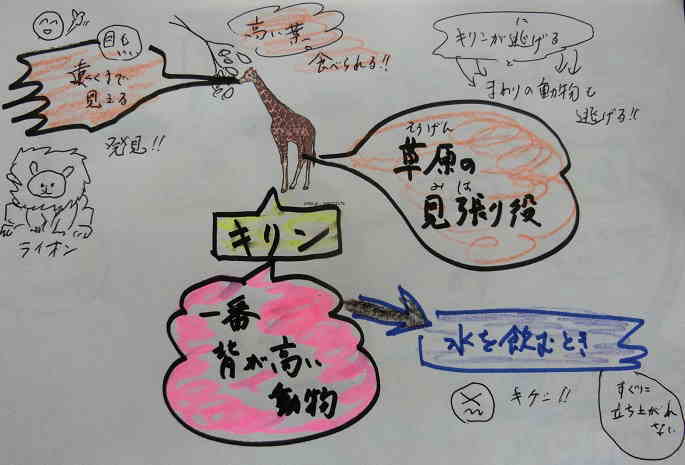 目も
遠くまで
見える
発見!!
ライオン
高い葉
食べられる!!
キリンが逃げる
に
と
まわりの動物も
逃げる!!
そうげん
草原の
みは
見張り役
キリン
一番
背が高い
動物
水を飲むとき
キケン!!
すぐに
立ち上がれ
ない